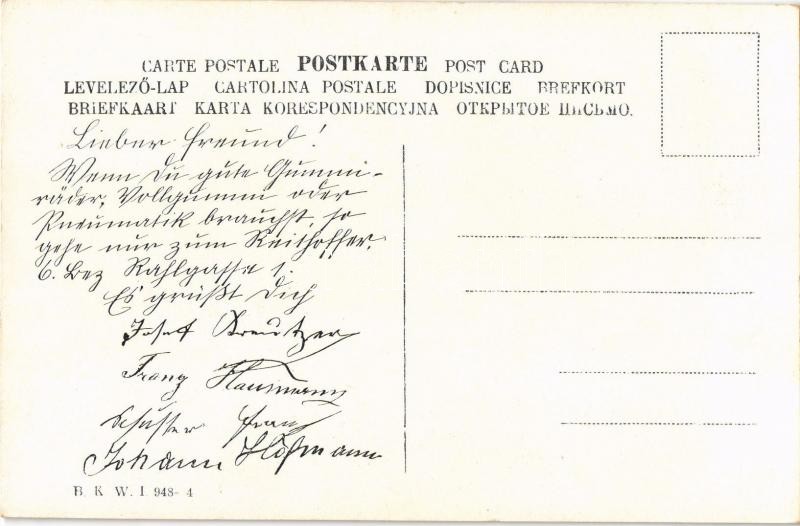 CARTE POSTALE POSTKARTE POST CARD
LEVELEZŐ-LAP CARTOLINA POSTALE DOPISNICE BREFKORT
BRIEFKAART KARTA KORESPONDENCYJNA ОТКРЫТОЕ ПИСЬМО.
Lieber Freund!
Wenn Du gute Gummi-
räder, Vollgummi oder
Pneumatik brauchst, so
gehe nur zum Reithoffer,
6. Bez Rahlgasse 1.
Es grüßt Dich
Josef Kreutzer
Franz Hausmann
Schuster Franz
Johann Hofmann
B. K. W. I. 948-4